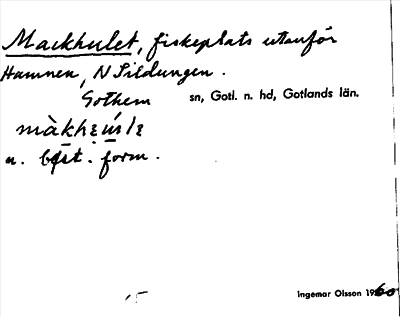 Mackhulet, fiskeplats utanför
Hamnen, N Sildungen.
Gothem sn, Gotl. n. hd, Gotlands län.
n. best. form.
Ingemar Olsson 1960